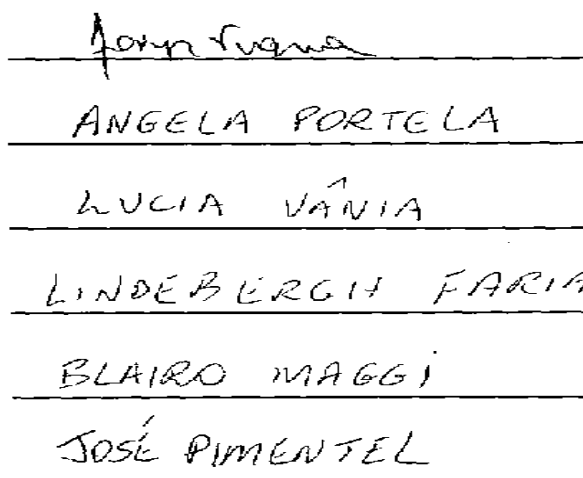 ANGELA PORTELA
LUCIA VÂNIA
LINDEBERGH FARIA
BLAIRO MAGGI
JOSÉ PIMENTEL